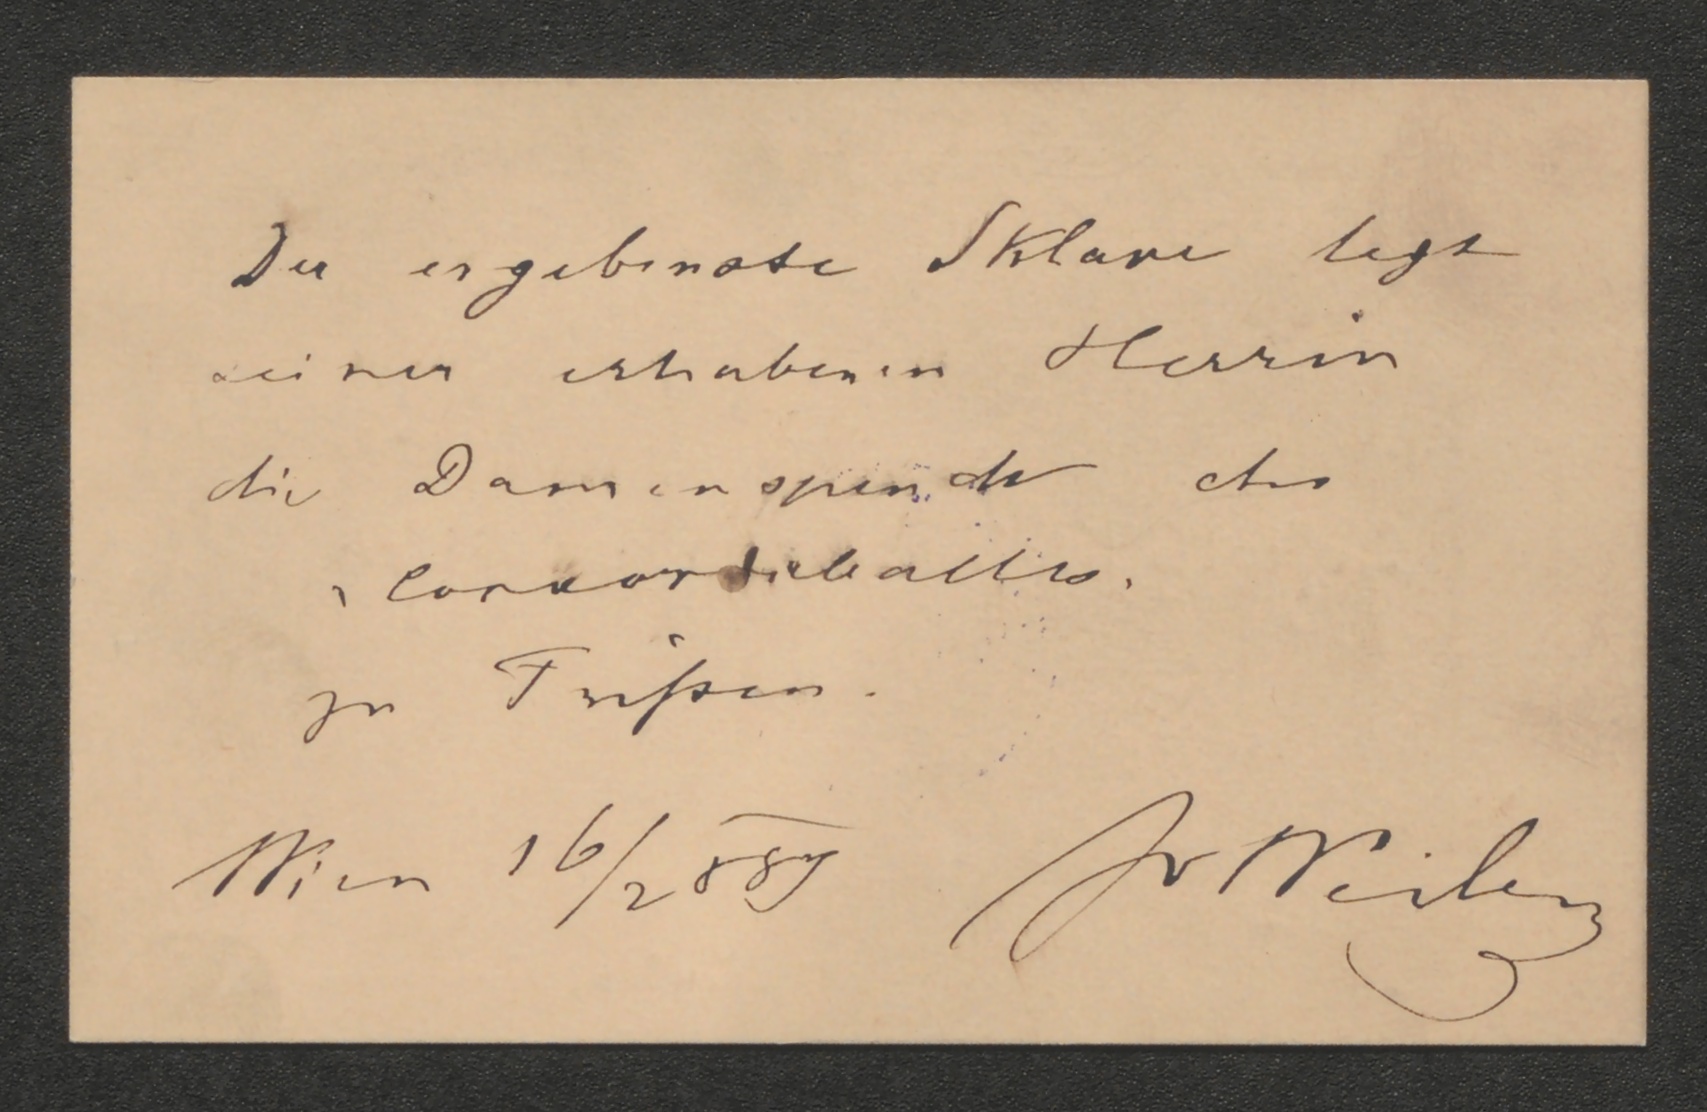 Der ergebenste Sklave legt
seiner erhabenen Herrin
die Damenspende des
„Concordiaballes"
zu Füßen.
Wien 16/2 889 JvWeilen